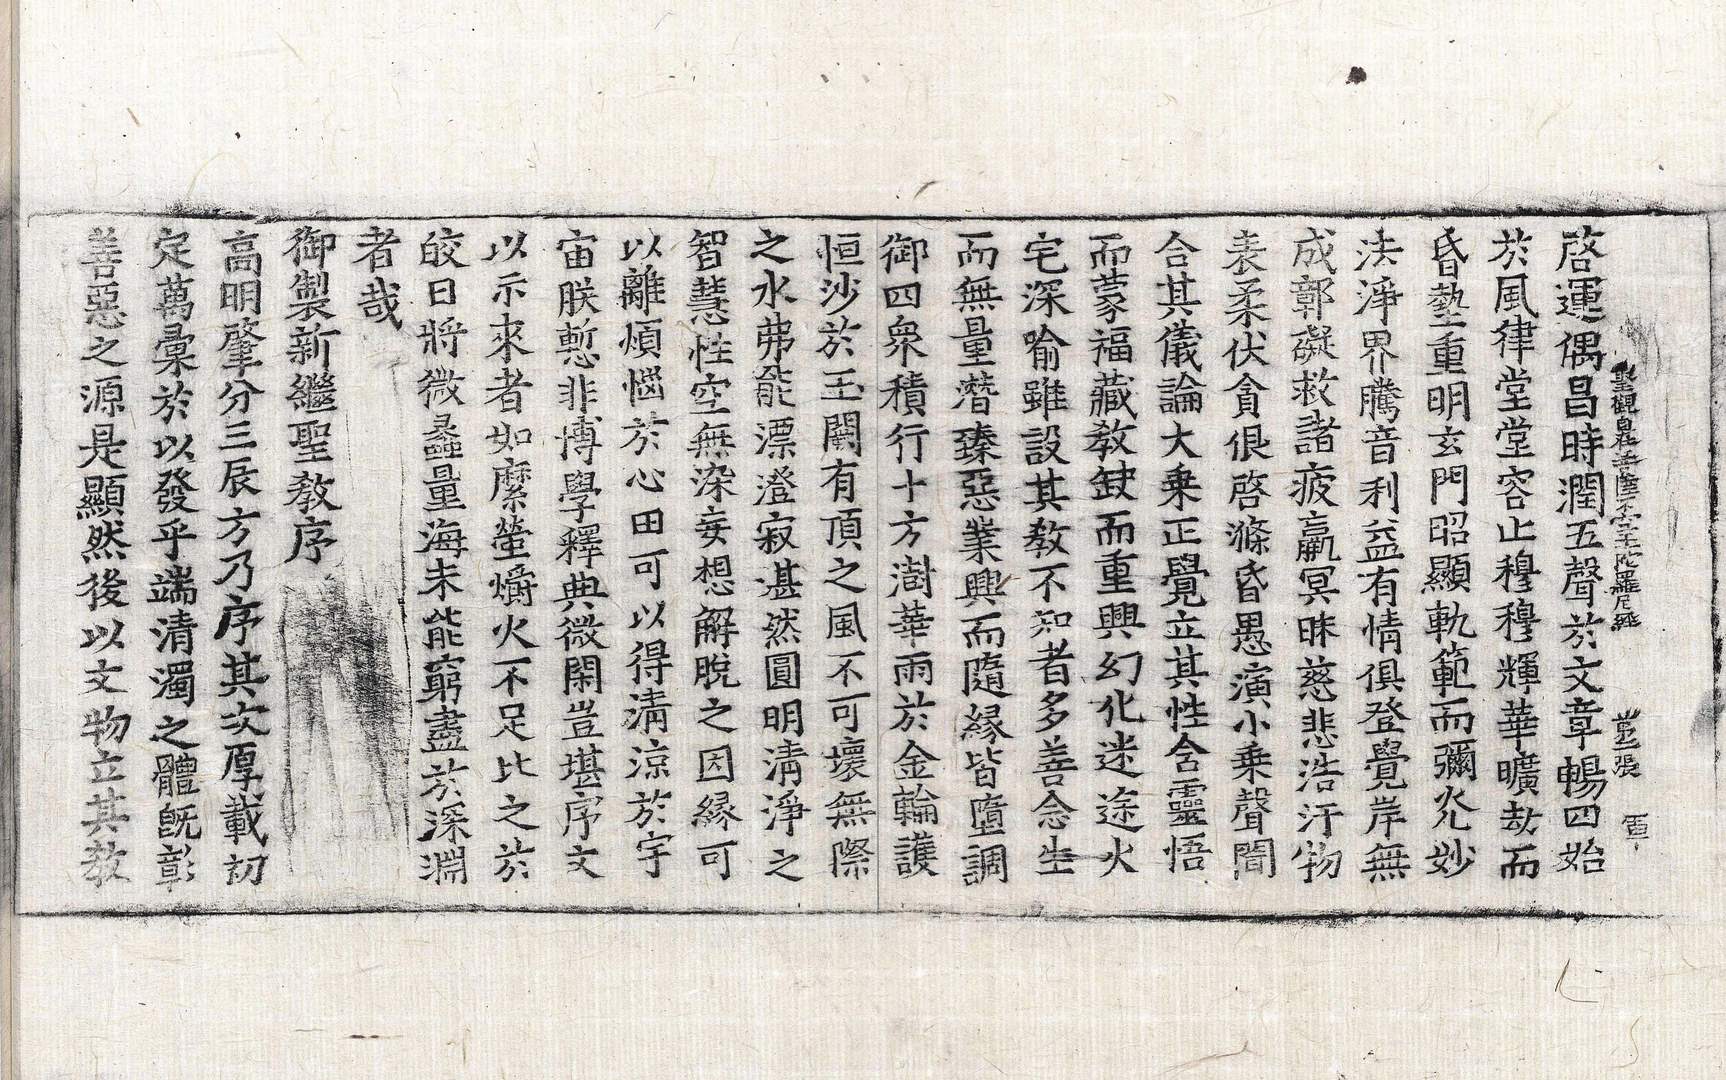 聖觀自在菩薩不空王陀羅尼經 第二張 軍
啓運偶昌時潤五聲於文章暢四始
於風律堂堂容止穆穆輝華曠劫而
昏墊重明玄門昭顯軌範而彌光妙
法淨界騰音利益有情俱登覺岸無
成鄣礙救諸疲羸冥昧慈悲浩汗物
表柔伏貪佷啓滌昏愚演小乘聲聞
合其儀論大乘正覺立其性含靈悟
而蒙福藏教缺而重興幻化迷途火
宅深喻雖設其教不知者多善念生
而無量潛臻惡業興而隨緣皆墮調
御四衆積行十方澍華雨於金輪護
恒沙於玉闕有頂之風不可壞無際
之水弗能漂澄寂湛然圓明清淨之
智慧性空無染妄想解脫之因緣可
以離煩惱於心田可以得清涼於宇
宙朕慙非博學釋典微閑豈堪序文
以示來者如縻螢爝火不足比之於
皎日將微蠡量海未能窮盡於深淵
者哉
御製新繼聖教序
高明肇分三辰方乃序其次厚載初
定萬彙於以發乎端清濁之體既彰
善惡之源是顯然後以文物立其教